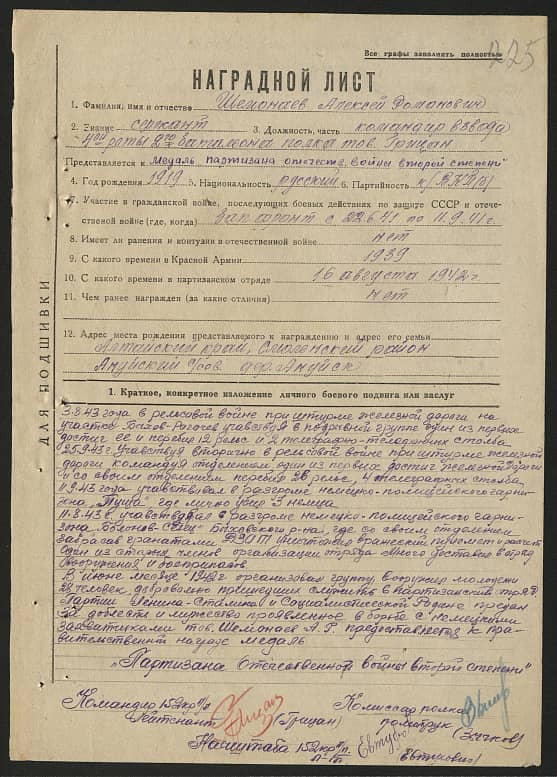 Все графы заполнять полностью
225
НАГРАДНОЙ ЛИСТ
1. Фамилия, имя и отчество Шемонаев Алексей Романович
2. Звание сержант 3. Должность, часть командир взвода
4ой роты 2го батальона полка тов. Грицан
Представляется к "медаль партизана отечеств. войны второй степени"
4. Год рождения 1919 5. Национальность русский 6. Партийность к/ВКП(б)
7. Участие в гражданской войне, последующих боевых действиях по защите СССР и отече-
ственной войне (где, когда) Зап. фронт с 22.6.41 по 11.9.41 г.
8. Имеет ли ранения и контузии в отечественной войне нет
9. С какого времени в Красной Армии 1939
10. С какого времени в партизанском отряде 16 августа 1942 г.
11. Чем ранее награжден (за какие отличия) нет
12. Адрес места рождения представляемого к награждению и адрес его семьи
Алтайский край, Смоленский район
Ануйский с/сов. дер. Ануйск
ДЛЯ ПОДШИВКИ
1. Краткое, конкретное изложение личного боевого подвига или заслуг
3.8.43 года в рельсовой войне при штурме железной дороги на
участке Рогачев участвуя в подрывной группе один из первых
достиг ее и перебил 12 рельс и 2 телеграфно-телефонных столба
25.9.43 г. Участвуя вторично в рельсовой войне при штурме железной
дороги, командуя отделением один из первых достиг железной дороги
и со своим отделением перебил 36 рельс, 4 телеграфных столба
11.9.43 года участвовал в разгроме немецко-полицейского гарни-
зона, где лично убил 3 немца
11.8.43 г. участвовал в разгроме немецко-полицейского гарни-
зона р-на, где со своим отделением
забросав гранатами ДЗОТ уничтожив вражеский пулемет и расчет
Один из старых членов организации отряда. Много доставил в отряд
вооружения и боеприпасов
В июне месяце 1942 г. организовал группу, вооружил молодежи
человек, добровольно пришедших служить в партизанский отряд
Партии Ленина-Сталина и Социалистической Родине предан
За доблесть и мужество проявленное в борьбе с немецкими
захватчиками тов. Шемонаев А.Р. представляется к пра-
вительственной награде медаль
"Партизана отечественной войны второй степени"
Командир 152 Комиссар полка
лейтенант (Грицан) политрук
Нач. штаба 152